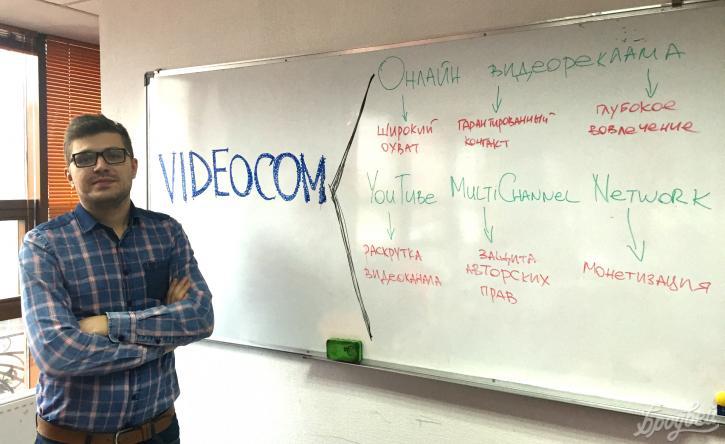 VIDEOCOM
Онлайн видеореклама
широкий
охват
гарантированный
контакт
глубокое
вовлечение
YouTube MultiChannel Network
раскрутка
видеоканала
защита
авторских
прав
монетизация
Бродвей